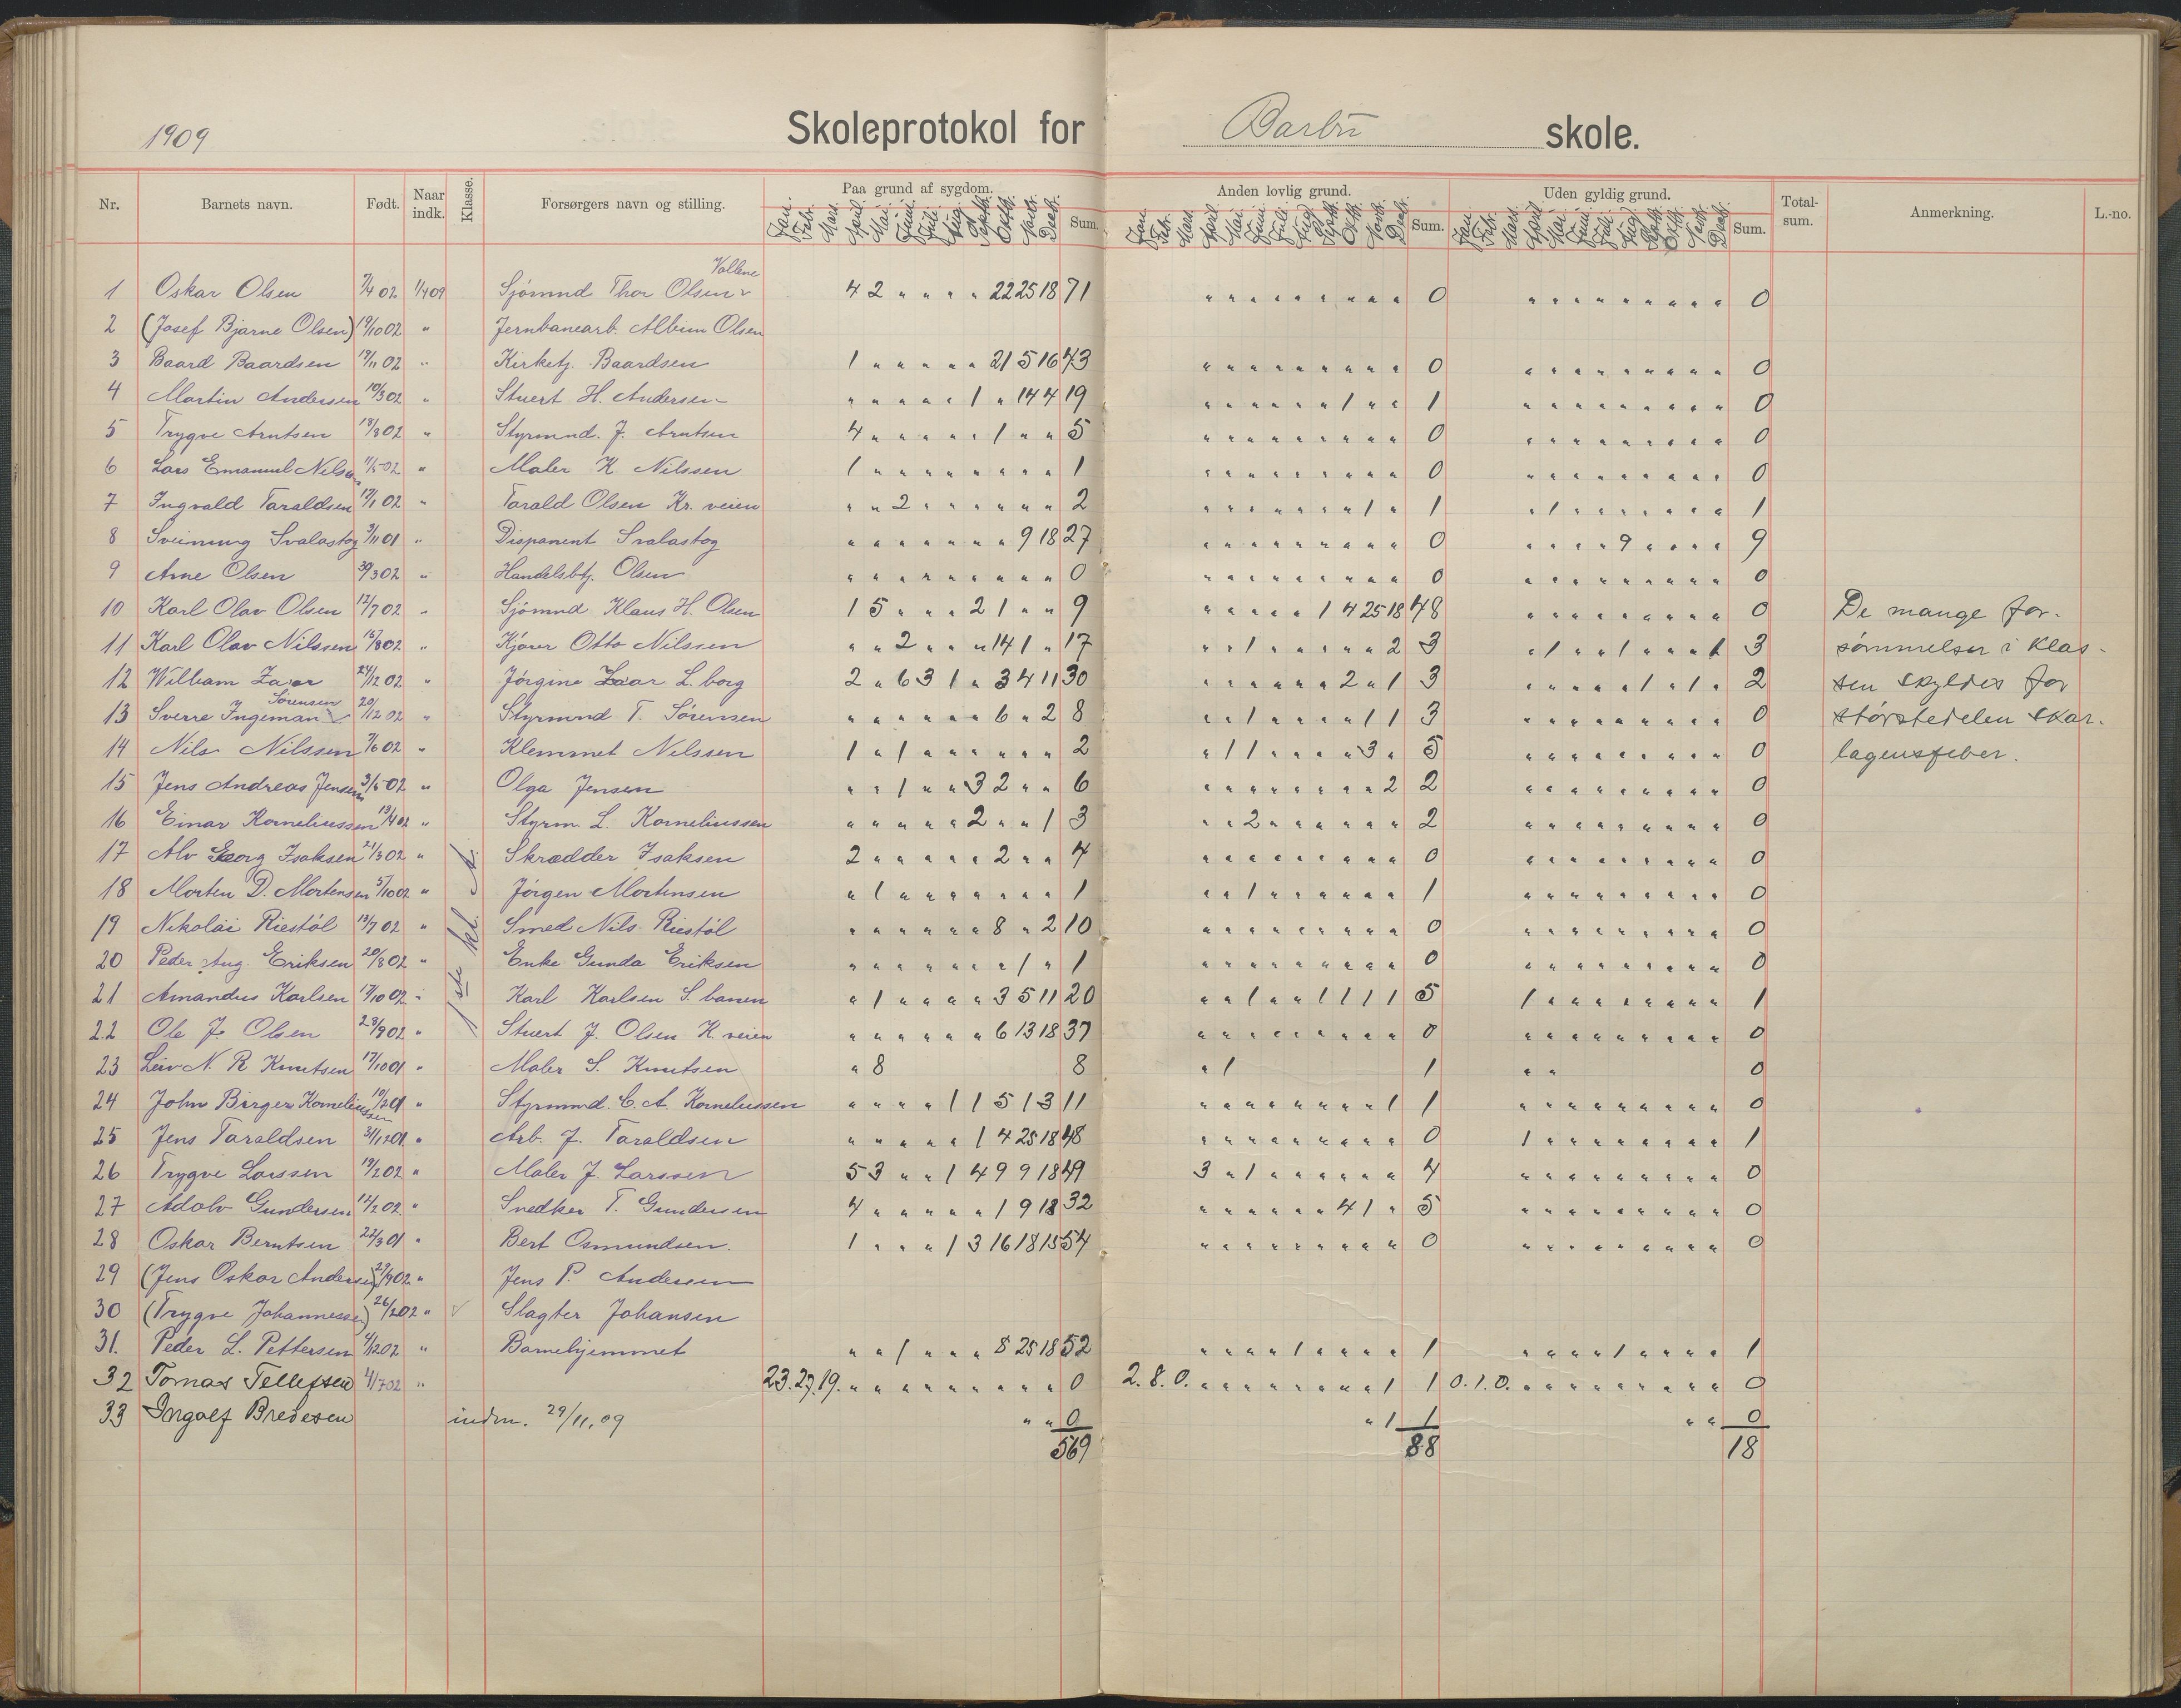 1909 Skoleprotokol for Barbu skole.
Nr. Barnets navn. Født. Naar indk. Klasse. Forsørgers navn og stilling. Paa grund af sygdom. Anden lovlig grund. Uden gyldig grund. Total-sum. Anmerkning. L.-no.
Jan. Febr. Mars. April. Mai. Juni. Juli. Aug. Septb. Oktb. Novb. Decb. Sum. Jan. Febr. Mars. April. Mai. Juni. Juli. Aug. Septb. Oktb. Novb. Decb. Sum. Jan. Febr. Mars. April. Mai. Juni. Juli. Aug. Septb. Oktb. Novb. Decb. Sum.
Vollene
1 Oskar Olsen 7/4 02 1/4 09 Sjömnd Thor Olsen 4 2 " " " " 22 25 18 71 " " " " " " " " " 0 " " " " " " " " " 0
2 (Josef Bjarne Olsen) 19/10 02 " Jernbanearb. Albin Olsen
3 Baard Baardsen 19/11 02 " Kirketj. Baardsen 1 " " " " " 21 5 16 43 " " " " " " " " " 0 " " " " " " " " " 0
4 Martin Andersen 10/3 02 " Stuert H. Andersen " " " " " 1 " 14 4 19 " " " " " " 1 " " 1 " " " " " " " " " 0
5 Trygve Arntsen 18/8 02 " Styrmnd. J. Arntsen 4 " " " " " 1 " " 5 " " " " " " " " " 0 " " " " " " " " " 0
6 Lars Emanuel Nilsen 11/5 02 " Maler K. Nilssen 1 " " " " " " " " 1 " " " " " " " " " 0 " " " " " " " " " 0
7 Ingvald Taraldsen 17/1 02 " Tarald Olsen Kr. veien " " 2 " " " " " " 2 " " " " " " " 1 " 1 " 1 " " " " " " " 1
8 Sveinung Svalastog 3/11 01 " Disponent Svalastog " " " " " " " 9 18 27 " " " " " " " " " 0 " " " " 9 " " " " 9
9 Arne Olsen 30/3 02 " Handelsbtj. Olsen " " " " " " " " " 0 " " " " " " " " " 0 " " " " " " " " " 0
10 Karl Olav Olsen 12/7 02 " Sjömnd Klaus H. Olsen 1 5 " " " 2 1 " " 9 " " " " " 1 4 25 18 48 " " " " " " " " " 0 De mange for-
11 Karl Olav Nilssen 15/8 02 " Kjörer Otto Nilssen " " 2 " " " 14 1 " 17 " " 1 " " " " " 2 3 " 1 " " 1 " " " 1 3 sömmelser i Klas-
12 William Zaar 24/12 02 " Jörgine Zaar L. borg 2 " 6 3 1 " 3 4 11 30 " " " " " " 2 " 1 3 " " " " " 1 " 1 " 2 sen skyldes for
13 Sverre Ingeman Sörensen 20/12 02 " Styrmnd T. Sörensen " " " " " " 6 " 2 8 " " 1 " " " " 1 1 3 " " " " " " " " " 0 störstedelen skar-
14 Nils Nilssen 7/6 02 " Klemmet Nilssen 1 " 1 " " " " " " 2 " 1 1 " " " " 3 " 5 " " " " " " " " " 0 lagensfeber.
15 Jens Andreas Jensen 3/5 02 " Olga Jensen " " 1 " " 3 2 " " 6 " " " " " " " " 2 2 " " " " " " " " " 0
16 Einar Korneliussen 13/4 02 " Styrm. L. Korneliussen " " " " " 2 " " 1 3 " " 2 " " " " " " 2 " " " " " " " " " 0
17 Alv Georg Isaksen 21/3 02 " Skrædder Isaksen 2 " " " " " 2 " " 4 " " " " " " " " " 0 " " " " " " " " " 0
18 Morten D. Mortensen 5/10 02 " Jörgen Mortensen " 1 " " " " " " " 1 " " 1 " " " " " " 1 " " " " " " " " " 0
1ste kl. A.
19 Nikolai Riestöl 13/7 02 " Smed Nils Riestöl " " " " " " 8 " 2 10 " " " " " " " " " 0 " " " " " " " " " 0
20 Peder Aug. Eriksen 20/8 02 " Enke Gunda Eriksen " " " " " " " 1 " 1 " " " " " " " " " 0 " " " " " " " " " 0
21 Amandus Karlsen 17/10 02 " Karl Karlsen S. banen " 1 " " " " 3 5 11 20 " " 1 " " 1 1 1 1 5 1 " " " " " " " " 1
22 Ole J. Olsen 28/9 02 " Stuert J. Olsen K. veien " " " " " " 6 13 18 37 " " " " " " " " " 0 " " " " " " " " " 0
23 Leiv N. R. Knutsen 17/10 01 " Maler S. Knutsen " 8 8 " 1 1 " " 0
24 John Birger Korneliussen 10/2 01 " Styrmnd. C. A. Korneliussen " " " " 1 1 5 1 3 11 " " " " " " " " 1 1 " " " " " " " " " 0
25 Jens Taraldsen 31/12 01 " Arb. J. Taraldsen " " " " " 1 4 25 18 48 " " " " " " " " " 0 1 " " " " " " " " 1
26 Trygve Larssen 19/2 02 " Maler J. Larssen 5 3 " " 1 4 9 9 18 49 3 " 1 " " " " " " 4 " " " " " " " " " 0
27 Adolv Gundersen 14/2 02 " Snedker T. Gundersen 4 " " " " " 1 9 18 32 " " " " " " 4 1 " 5 " " " " " " " " " 0
28 Oskar Berntsen 22/3 01 " Bert Osmundsen. 1 " " " 1 3 16 18 15 54 " " " " " " " " " 0 " " " " " " " " " 0
29 (Jens Oskar Andersen) 29/9 02 " Jens P. Andersen
30 (Trygve Johannessen) 26/2 02 " Slagter Johansen
31. Peder L. Pettersen 4/2 02 " Barnehjemmet " " 1 " " " 8 25 18 52 " " " " 1 " " " " 1 " " " " 1 " " " " 1
32 Tomas Tellefsen 4/7 02 " 23. 27. 19. " " " " " " " " " 0 2. 8. 0. " " " " " " " " 1 1 0. 1. 0. " " " " " " " " " 0
33 Ingolf Bredesen indm. 29/11, 09 " " 0 " 1 1 " " 0
569 88 18